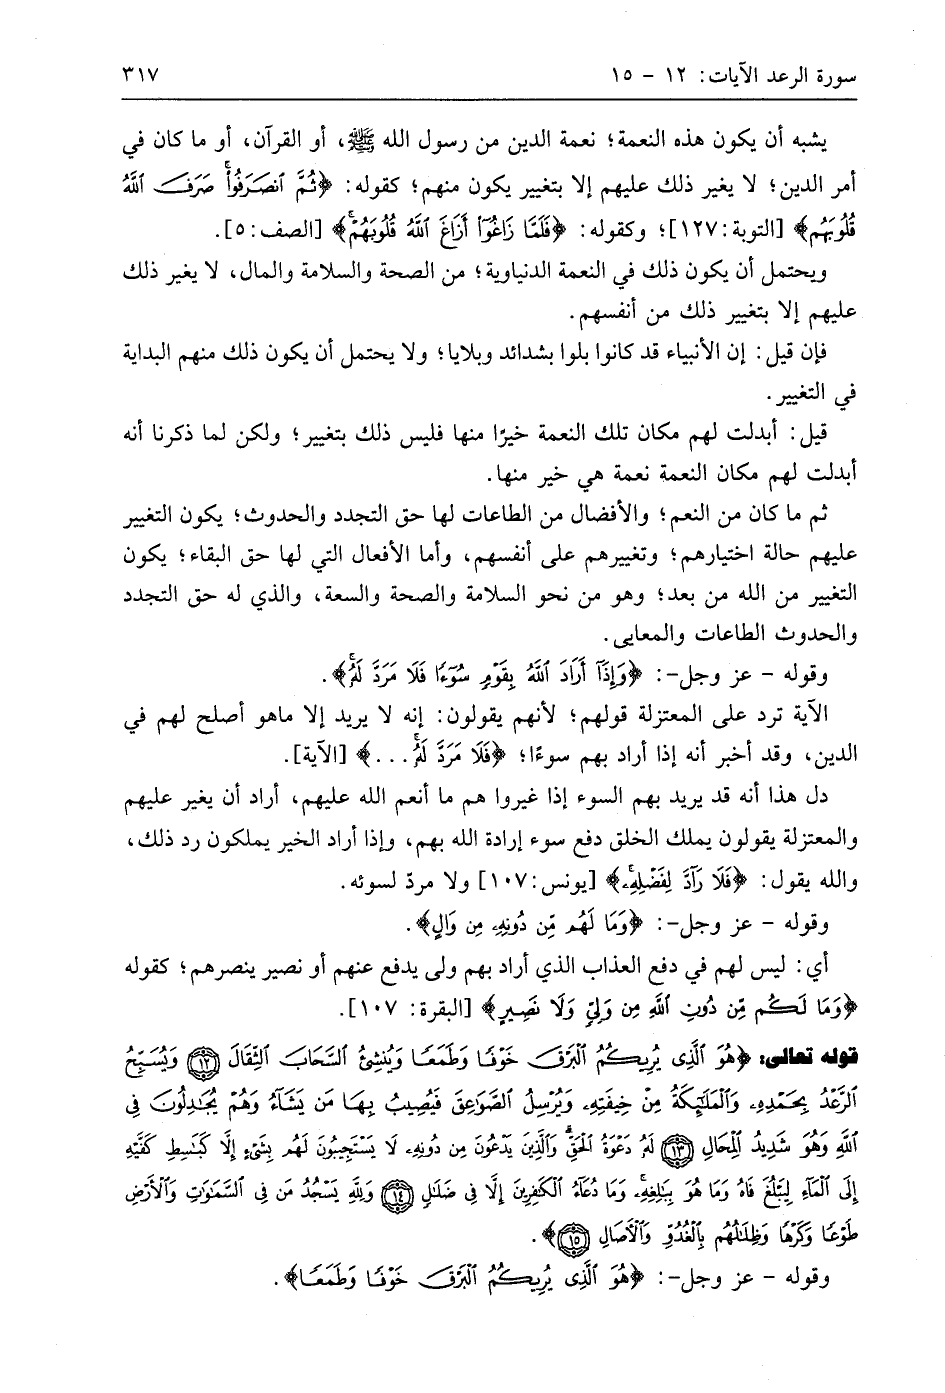 سورة الرعد الآيات: ١٢ - ١٥ ٣١٧
يشبه أن يكون هذه النعمة؛ نعمة الدين من رسول الله ﷺ، أو القرآن، أو ما كان في
أمر الدين؛ لا يغير ذلك عليهم إلا بتغيير يكون منهم؛ كقوله: ﴿ثُمَّ ٱنصَرَفُوا۟ۚ صَرَفَ ٱللَّهُ
قُلُوبَهُم﴾ [التوبة:١٢٧]؛ وكقوله: ﴿فَلَمَّا زَاغُوٓا۟ أَزَاغَ ٱللَّهُ قُلُوبَهُمْۚ﴾ [الصف:٥].
ويحتمل أن يكون ذلك في النعمة الدنياوية؛ من الصحة والسلامة والمال، لا يغير ذلك
عليهم إلا بتغيير ذلك من أنفسهم.
فإن قيل: إن الأنبياء قد كانوا بلوا بشدائد وبلايا؛ ولا يحتمل أن يكون ذلك منهم البداية
في التغيير.
قيل: أبدلت لهم مكان تلك النعمة خيرًا منها فليس ذلك بتغيير؛ ولكن لما ذكرنا أنه
أبدلت لهم مكان النعمة نعمة هي خير منها.
ثم ما كان من النعم؛ والأفضال من الطاعات لها حق التجدد والحدوث؛ يكون التغيير
عليهم حالة اختيارهم؛ وتغييرهم على أنفسهم، وأما الأفعال التي لها حق البقاء؛ يكون
التغيير من الله من بعد؛ وهو من نحو السلامة والصحة والسعة، والذي له حق التجدد
والحدوث الطاعات والمعايى.
وقوله - عز وجل-: ﴿وَإِذَآ أَرَادَ ٱللَّهُ بِقَوْمٍ سُوٓءًا فَلَا مَرَدَّ لَهُۥۚ﴾.
الآية ترد على المعتزلة قولهم؛ لأنهم يقولون: إنه لا يريد إلا ماهو أصلح لهم في
الدين، وقد أخبر أنه إذا أراد بهم سوءًا؛ ﴿فَلَا مَرَدَّ لَهُۥۚ...﴾ [الآية].
دل هذا أنه قد يريد بهم السوء إذا غيروا هم ما أنعم الله عليهم، أراد أن يغير عليهم
والمعتزلة يقولون يملك الخلق دفع سوء إرادة الله بهم، وإذا أراد الخير يملكون رد ذلك،
والله يقول: ﴿فَلَا رَآدَّ لِفَضْلِهِۦۚ﴾ [يونس:١٠٧] ولا مردّ لسوئه.
وقوله - عز وجل-: ﴿وَمَا لَهُم مِّن دُونِهِۦ مِن وَالٍ﴾.
أي: ليس لهم في دفع العذاب الذي أراد بهم ولى يدفع عنهم أو نصير ينصرهم؛ كقوله
﴿وَمَا لَكُم مِّن دُونِ ٱللَّهِ مِن وَلِىٍّ وَلَا نَصِيرٍ﴾ [البقرة: ١٠٧].
قوله تعالى: ﴿هُوَ ٱلَّذِى يُرِيكُمُ ٱلْبَرْقَ خَوْفًا وَطَمَعًا وَيُنشِئُ ٱلسَّحَابَ ٱلثِّقَالَ ١٢ وَيُسَبِّحُ
ٱلرَّعْدُ بِحَمْدِهِۦ وَٱلْمَلَٰٓئِكَةُ مِنْ خِيفَتِهِۦ وَيُرْسِلُ ٱلصَّوَٰعِقَ فَيُصِيبُ بِهَا مَن يَشَآءُ وَهُمْ يُجَٰدِلُونَ فِى
ٱللَّهِ وَهُوَ شَدِيدُ ٱلْمِحَالِ ١٣ لَهُۥ دَعْوَةُ ٱلْحَقِّۖ وَٱلَّذِينَ يَدْعُونَ مِن دُونِهِۦ لَا يَسْتَجِيبُونَ لَهُم بِشَىْءٍ إِلَّا كَبَٰسِطِ كَفَّيْهِ
إِلَى ٱلْمَآءِ لِيَبْلُغَ فَاهُ وَمَا هُوَ بِبَٰلِغِهِۦۚ وَمَا دُعَآءُ ٱلْكَٰفِرِينَ إِلَّا فِى ضَلَٰلٍ ١٤ وَلِلَّهِ يَسْجُدُ مَن فِى ٱلسَّمَٰوَٰتِ وَٱلْأَرْضِ
طَوْعًا وَكَرْهًا وَظِلَٰلُهُم بِٱلْغُدُوِّ وَٱلْءَاصَالِ ١٥﴾.
وقوله - عز وجل-: ﴿هُوَ ٱلَّذِى يُرِيكُمُ ٱلْبَرْقَ خَوْفًا وَطَمَعًا﴾.